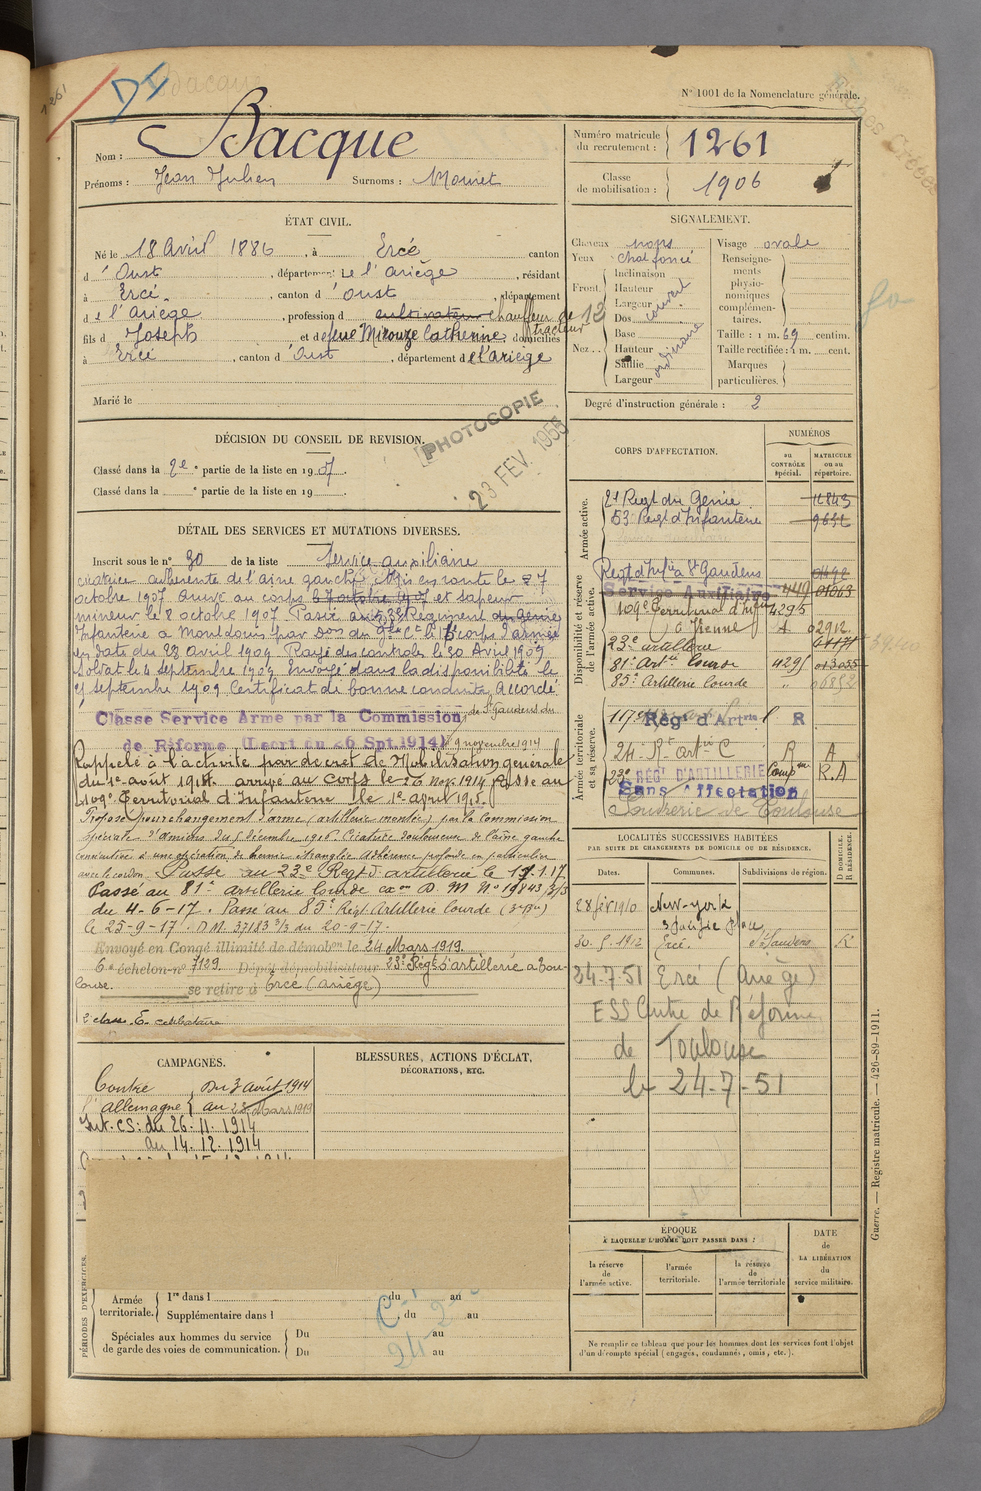 N° 1001 de la Nomenclature générale.
1261
Nom : Bacque
Prénoms : Jean Julien Surnoms : Mouret
Numéro matricule du recrutement : 1261
Classe de mobilisation : 1906
ÉTAT CIVIL.
Né le 18 Avril 1886, à Ercé canton
d'Oust, département de l'Ariège, résidant
à Ercé, canton d'Oust, département
de l'Ariège, profession de cultivateur chauffeur de tracteur
fils de Joseph et de feue Mirouze Catherine domiciliés
à Ercé, canton d'Oust, département de l'ariège
Marié le
SIGNALEMENT.
Cheveux noirs
Yeux chat foncé
Front. Inclinaison
Hauteur
Largeur
Nez.. Dos
Base
Hauteur
Saillie
Largeur
ordinaire
Visage ovale
Renseignements physionomiques complémentaires.
Taille : 1 m. 69 centim.
Taille rectifiée : 1 m. cent.
Marques particulières.
Degré d'instruction générale : 2
PHOTOCOPIE
23 FEV. 1955
DÉCISION DU CONSEIL DE REVISION.
Classé dans la 2e partie de la liste en 1907.
Classé dans la e partie de la liste en 19
DÉTAIL DES SERVICES ET MUTATIONS DIVERSES.
Inscrit sous le n° 30 de la liste Service auxiliaire
cicatrice adhérente de l'aine gauche Mis en route le 7
octobre 1907 arrivé au corps le 7 octobre 1907 et sapeur
mineur le 8 octobre 1907 Passé au 53e Régiment du génie
Infanterie à
en date du 23 avril 1909 Rayé des controles le 30 Avril 1909
Soldat le 4 septembre 1909 Envoyé dans la disponibilité le
septembre 1909 Certificat de bonne conduite Accordé
Classe Service Armé par la Commission de St Gaudens du
de Réforme (Décret du 26 Spt. 1914) 9 novembre 1914
Rappelé à l'activité par décret de Mobilisation générale
du 1er août 1914. arrivé au corps le 26 Nov. 1914 Passé au
109e Territorial d'Infanterie le 1er april 1915.
Proposé pour changement d'arme (artillerie montée) par la Commission
spéciale d'amiens du décembre 1916. Cicatrice douloureuse de l'aine gauche
consécutive à une opération de hernie étranglée adhérence profonde en particulier
avec le cordon. Passé au 23e Régt d'artillerie le 1.17
Passé au 81e artillerie lourde D. M N° 19843 3/3
du 4-6-17. Passé au 85e Régt Artillerie Lourde
le 25-9-17. D.M. 37183 3/3 du 20-9-17.
Envoyé en Congé illimité de démob. le 24 Mars 1919.
6e échelon n° 7129. Dépôt démobilisateur 23e Régt d'artillerie à Toulouse.
se retire à Ercé (ariège)
CORPS D'AFFECTATION.
NUMÉROS
au CONTRÔLE spécial.
MATRICULE ou au répertoire.
Armée active.
2e Régt du Génie
53e Régt d'Infanterie 9632
Disponibilité et réserve de l'armée active.
Régt d'Infie à St Gaudens
Service Auxiliaire 449 01063
109e Territorial d'Infie 4295
à Vienne A 02912
23e artillerie
81e Artie Lourde 4295 013035
85e Artillerie Lourde " 06852
Armée territoriale et sa réserve.
117e Régt d'Artie R
24e Rt artie C R A
23e RÉG' D'ARTILLERIE R.A
Sans Affectation
Poudrerie de Toulouse
LOCALITÉS SUCCESSIVES HABITÉES
PAR SUITE DE CHANGEMENTS DE DOMICILE OU DE RÉSIDENCE.
D DOMICILE. R RÉSIDENCE.
Dates. Communes. Subdivisions de région.
28 fév 1910 New-york
3 Pacific place
30.5.1912 Ercé. St Gaudens R
24-7-51 Ercé (Ariège)
ESS Centre de Réforme
de Toulouse
le 24-7-51
CAMPAGNES.
Contre l'allemagne
Du 3 août 1914
au 23 Mars 1919
Int. CS : du 26.11.1914
au 14.12.1914
BLESSURES, ACTIONS D'ÉCLAT,
DÉCORATIONS, ETC.
PÉRIODES D'EXERCICES.
Armée territoriale. 1re dans l du au
Supplémentaire dans l du au
Spéciales aux hommes du service de garde des voies de communication. Du au
Du au
ÉPOQUE
À LAQUELLE L'HOMME DOIT PASSER DANS :
la réserve de l'armée active.
l'armée territoriale.
la réserve de l'armée territoriale
DATE de LA LIBÉRATION du service militaire.
Ne remplir ce tableau que pour les hommes dont les services font l'objet
d'un décompte spécial (engagés, condamnés, omis, etc.).
Guerre. — Registre matricule. — 426-89-1911.